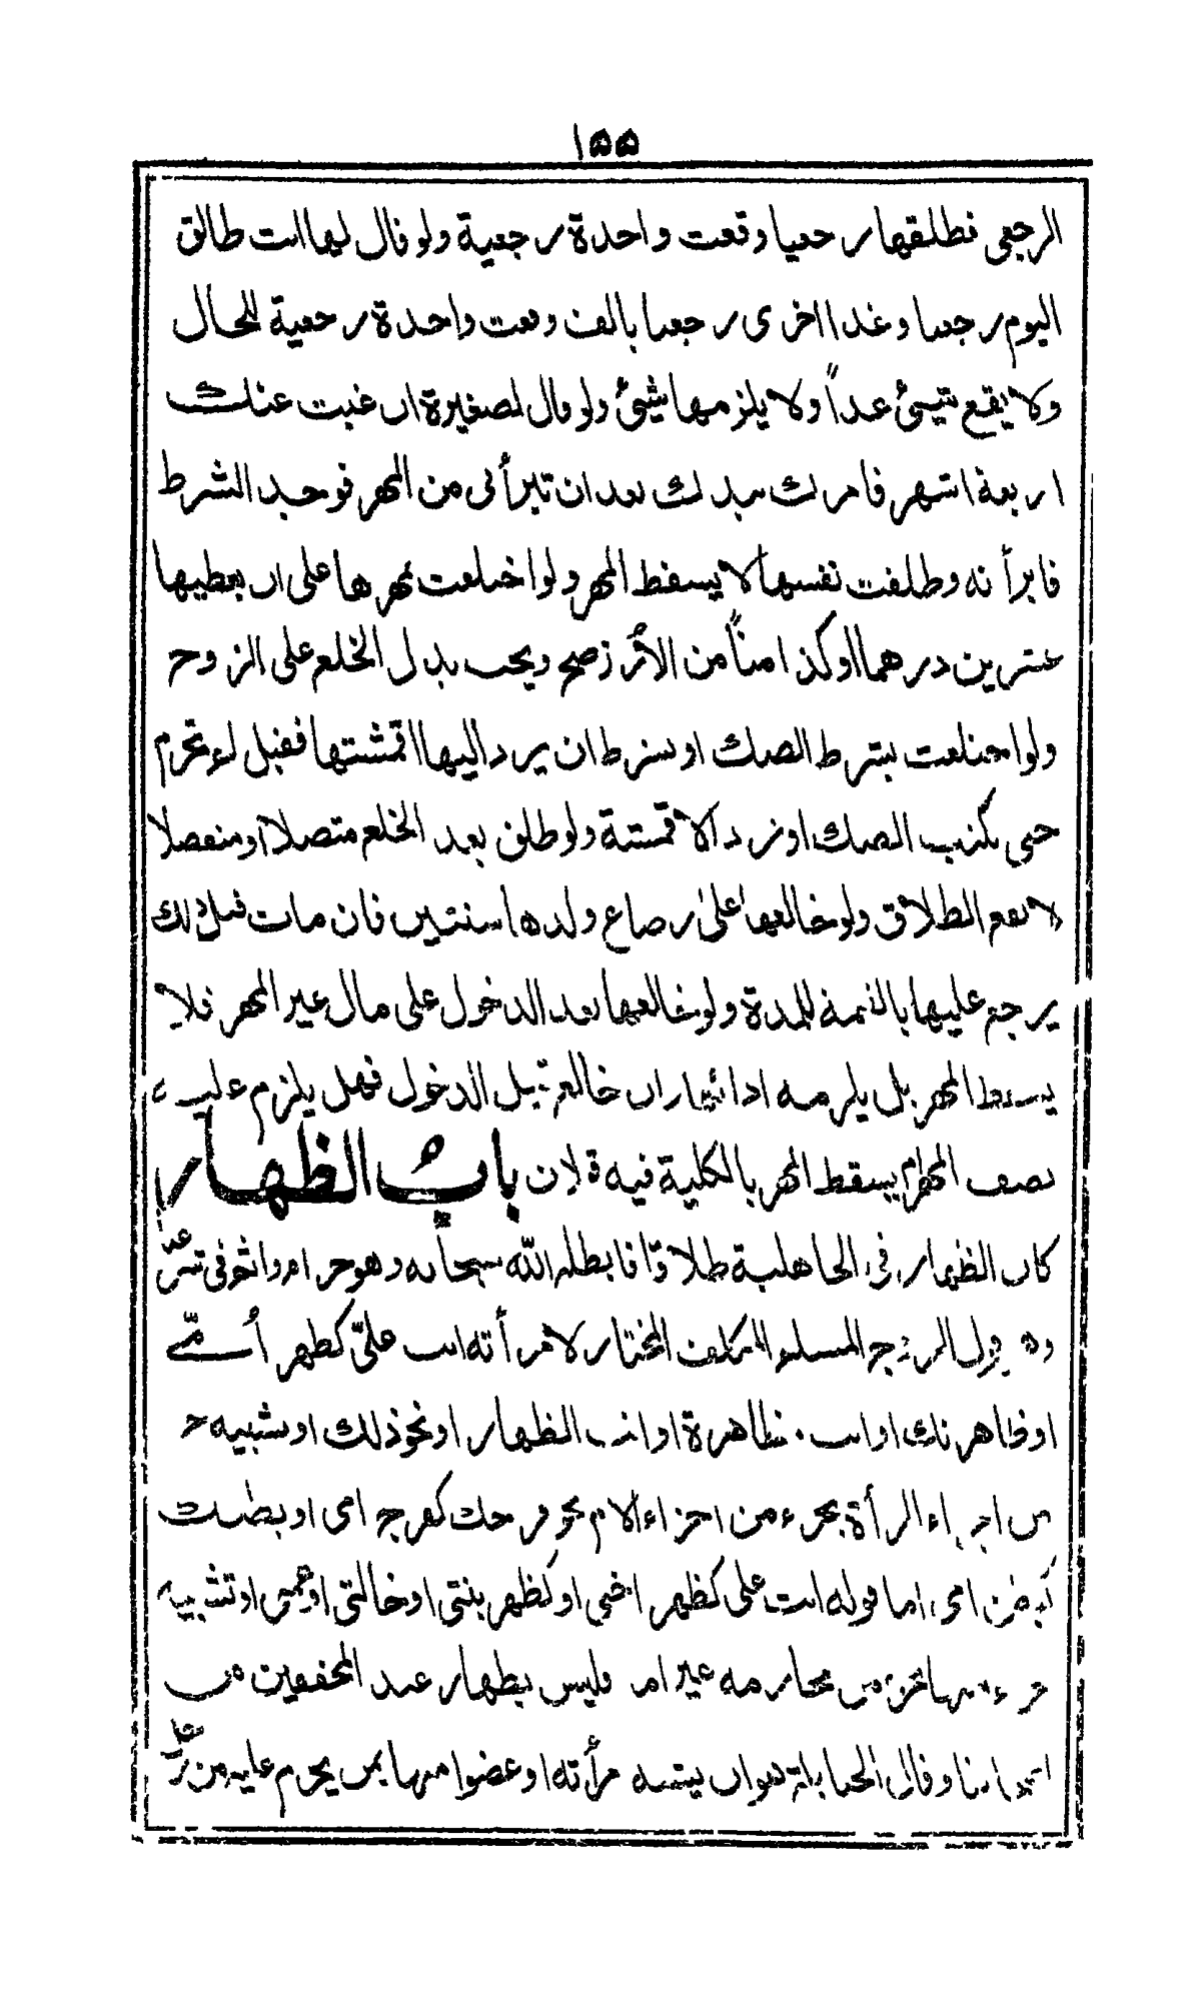 ١٥٥
الرجعى فطلقها رجعيا وقعت واحدة رجعية ولو قال لها انت طالق
اليوم رجعيا وغدا اخرى رجعيا بالف وقعت واحدة رجعية للحال
ولا يقع شيئ غداً ولا يلزمها شيئ ولو قال لصغيرة ان غبت عنك
اربعة اشهر فامرك بيدك بعد ان تبرأنى من المهر فوجد الشرط
فابرأ ته وطلقت نفسها لا يسقط المهر ولو اختلعت بمهرها على ان يعطيها
عشرين درهما او كذا مناً من الأرز صح ويجب بدل الخلع على الزوج
ولو اختلعت بشرط الصك او بشرط ان يرد اليها اقمشتها فقبل لم تحرم
حتى يكتب الصك او يرد الاقمشة ولو طلق بعد الخلع متصلا او منفصلا
لا يقع الطلاق ولو خالعها على رضاع ولدها سنتين فان مات قبل ذلك
يرجع عليها بالقيمة للمدة ولو خالعها بعد الدخول على مال غير المهر فلا
يسقط المهر بل يلزمه اداؤه ان خالع قبل الدخول فهل يلزم عليه
نصف المهر ام يسقط المهر بالكلية فيه قولان باب الظهار
كان الظهار فى الجاهلية طلاقا فابطله الله سبحانه وهو حرام واثم فى شر عنا
وهو قول الزوج المسلم المكلف المختار لامرأته انت علىّ كظهر أمّى
او ظاهرتك او انت مظاهرة او انت الظهار او نحو ذلك او تشبيه
من اجزاء المرأة بجزء من اجزاء الام نحو فرجك كفرج امى او بطنك
كبطن امى اما قوله انت على كظهر اختى او كظهر بنتى او خالتى او عمتى او تشبيه
جزء منها بجزء من محارمه غير امه فليس بظهار عند المحققين من
اصحابنا وقال الحنابلة هو ان يشبه امرأته او عضوا منها بمن يحرم عليه من